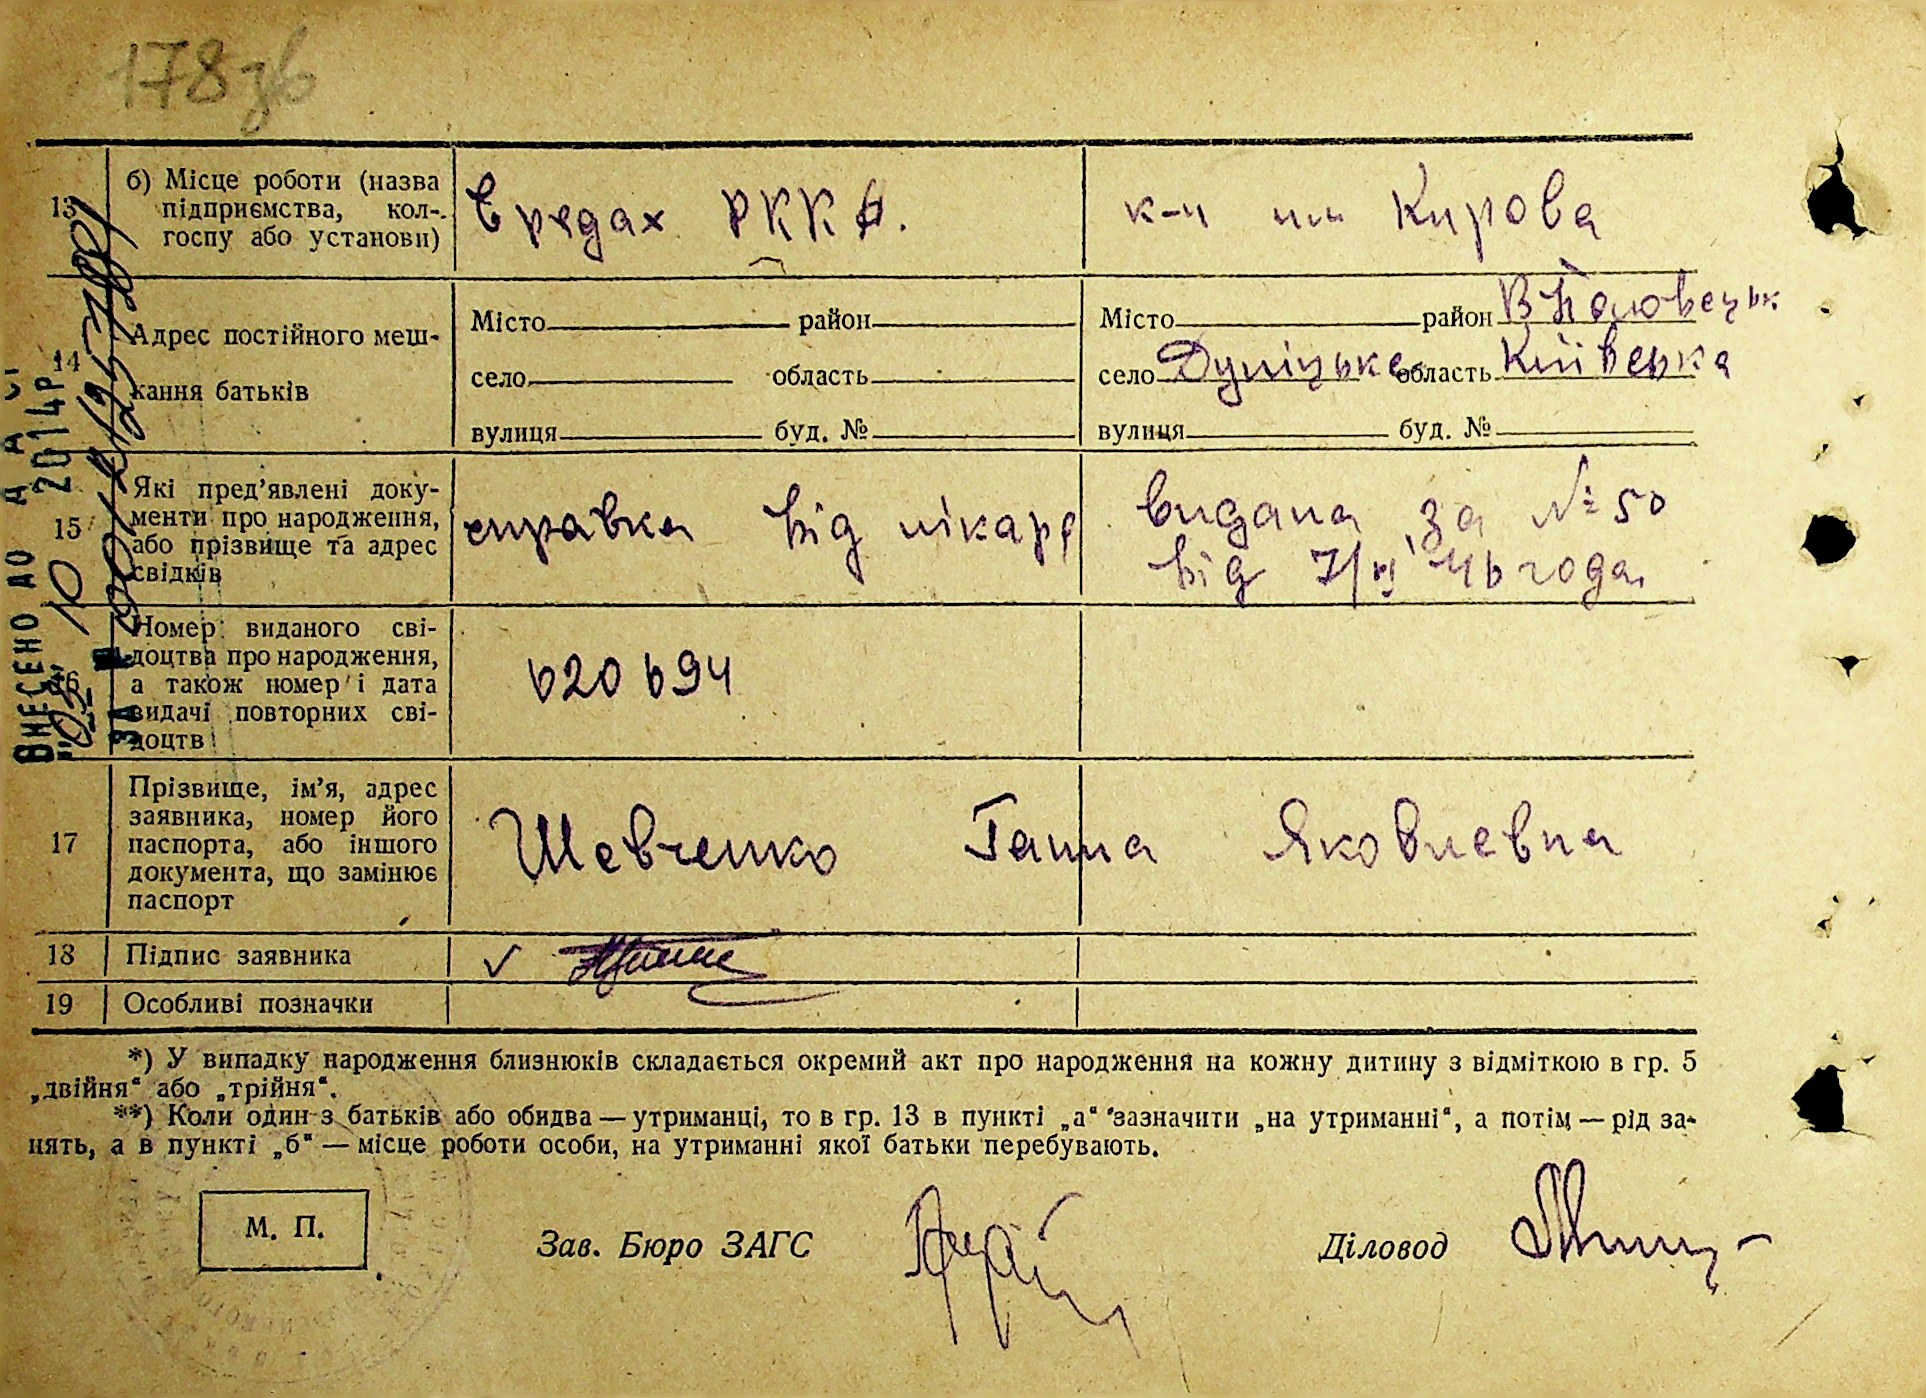 178зв
13 б) Місце роботи (назва підприємства, кол-госпу або установи) В рядах РККА. к-п им Кирова
14 Адрес постійного меш-
кання батьків
Місто район Місто район В Половецьк
село область село область Київська
вулиця буд. № вулиця буд. №
15 Які пред'явлені доку-
менти про народження,
або прізвище та адрес
свідків
справка від лікаря видана за № 50
від 7/ 46 года
16 Номер виданого сві-
доцтва про народження,
а також номер і дата
видачі повторних сві-
доцтв
620694
17 Прізвище, ім'я, адрес
заявника, номер його
паспорта, або іншого
документа, що замінює
паспорт
Шевченко Ганна Яковлевна
18 Підпис заявника
19 Особливі позначки
*) У випадку народження близнюків складається окремий акт про народження на кожну дитину з відміткою в гр. 5
„двійня“ або „трійня“.
**) Коли один з батьків або обидва — утриманці, то в гр. 13 в пункті „а“ зазначити „на утриманні“, а потім — рід за-
нять, а в пункті „б“ — місце роботи особи, на утриманні якої батьки перебувають.
М. П.
Зав. Бюро ЗАГС
Діловод
ВНЕСЕНО ДО
2014р
ЗА №